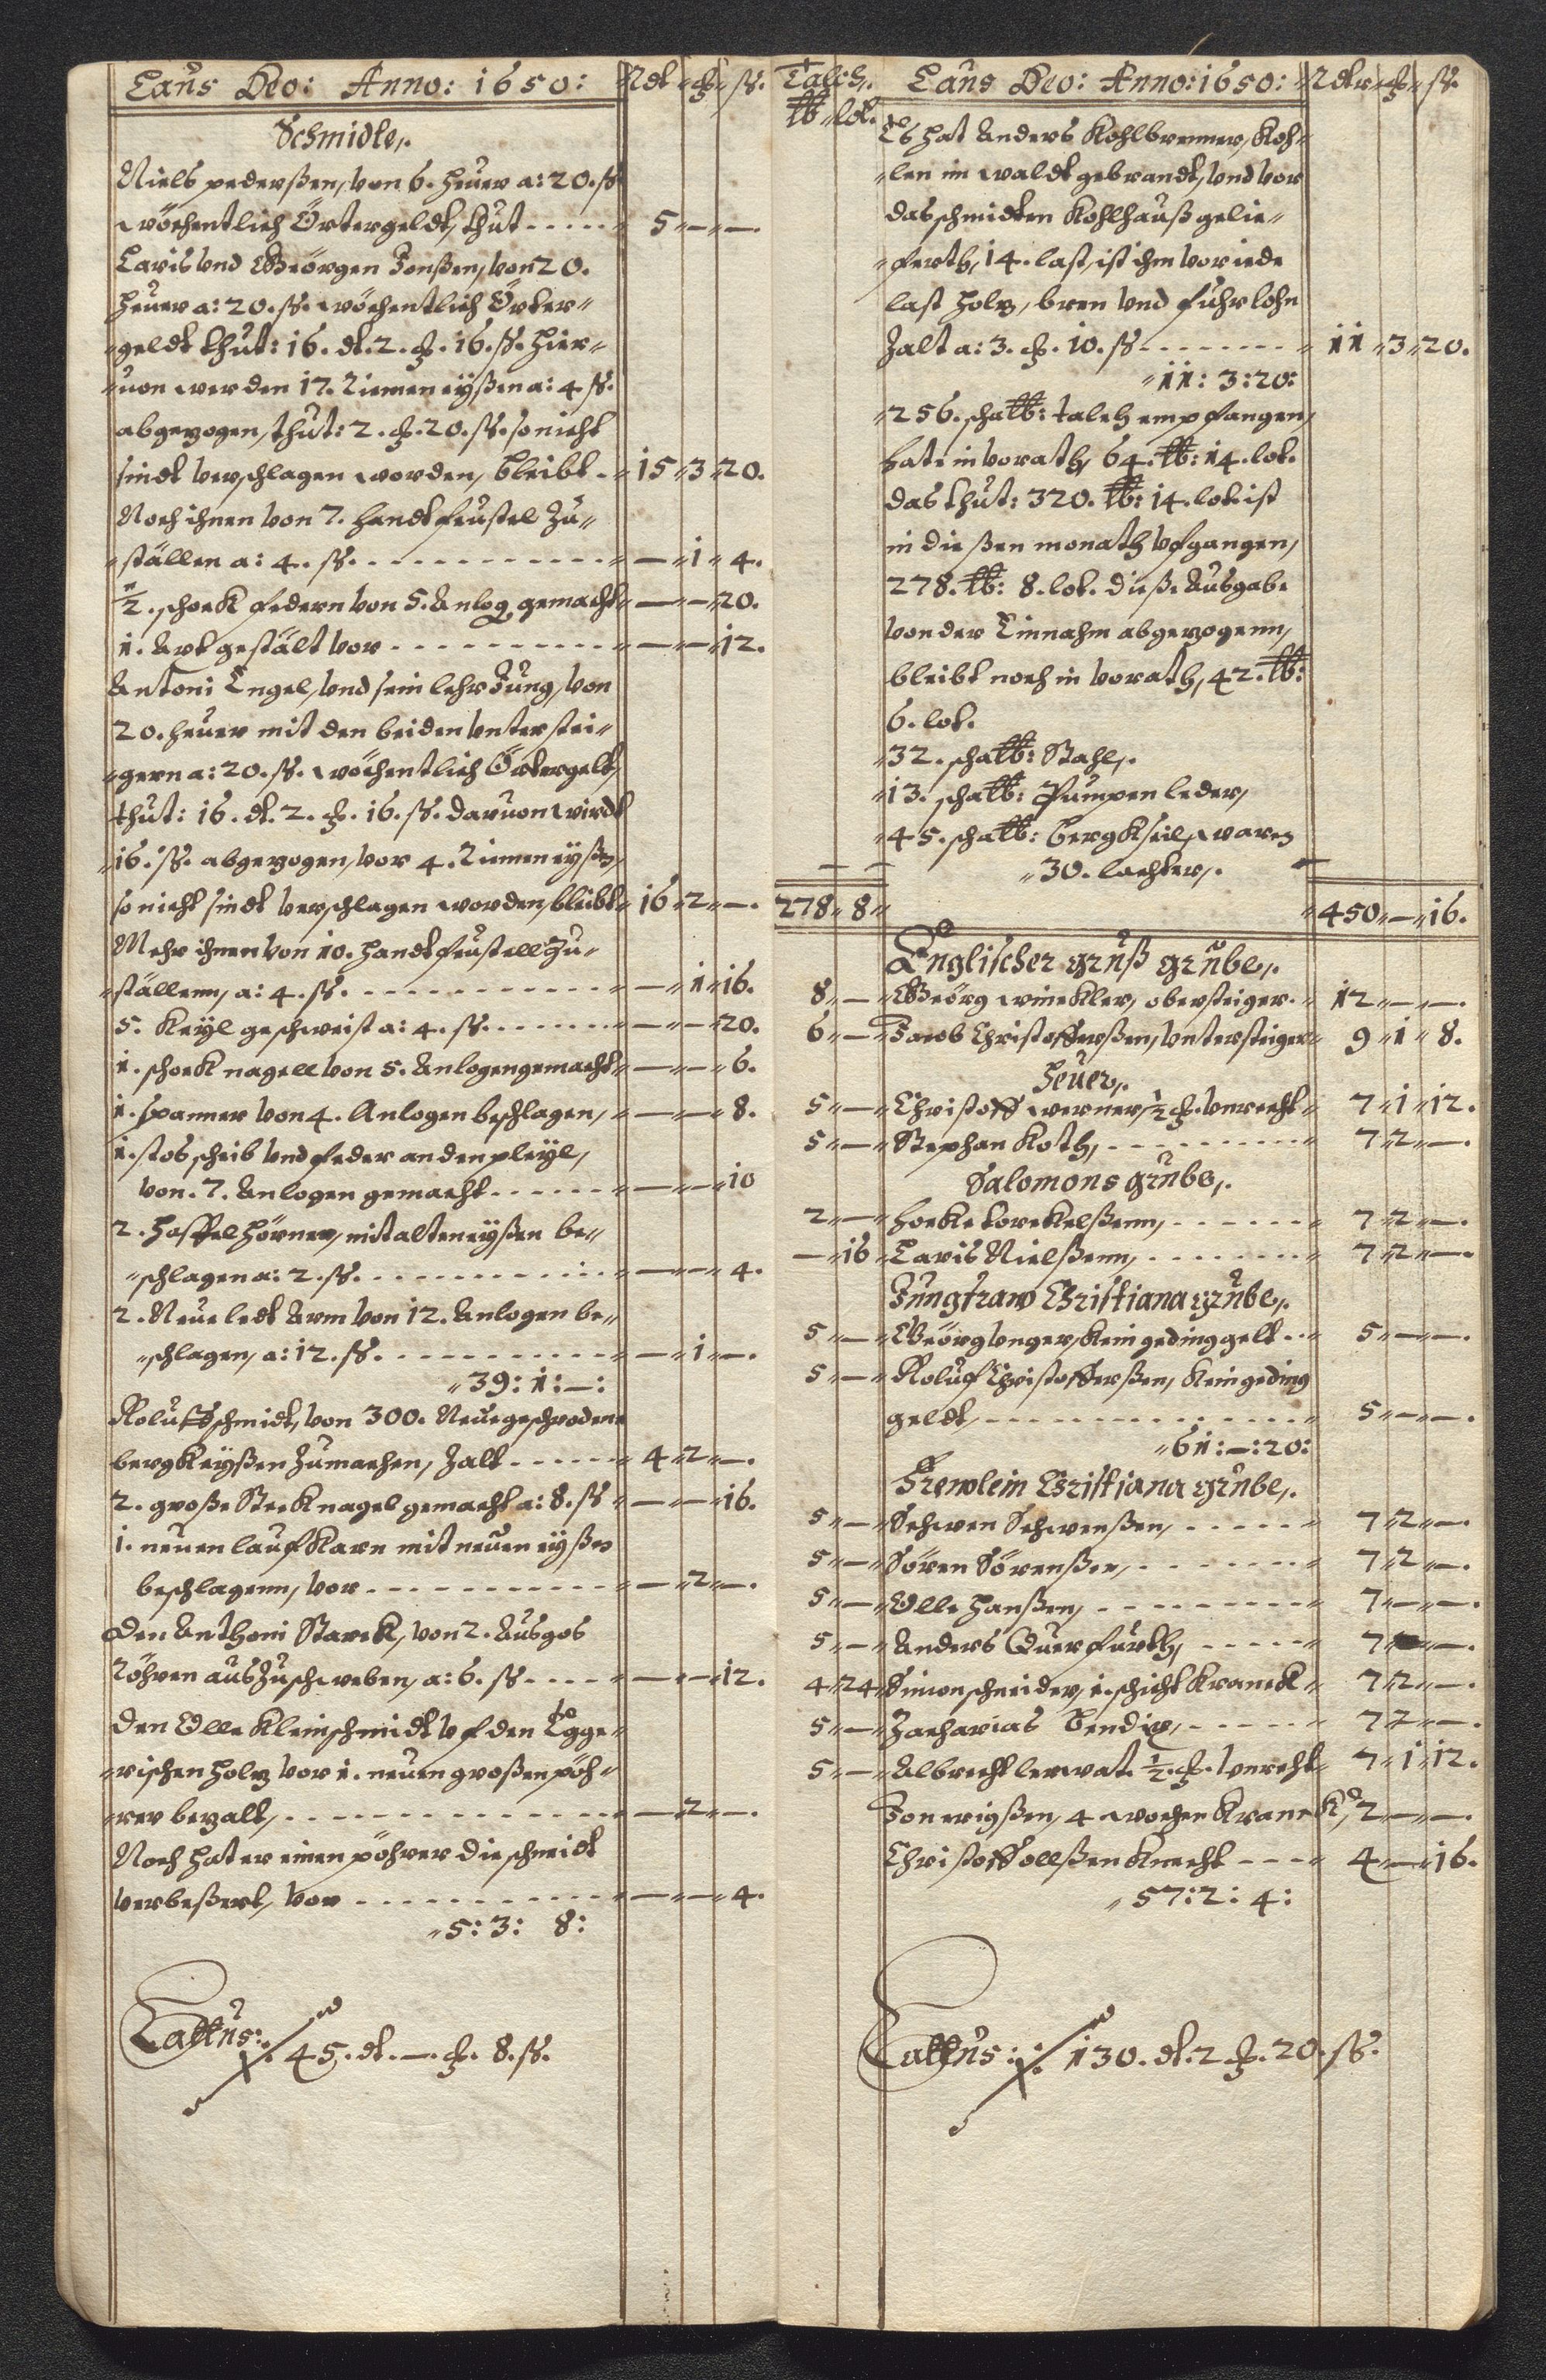 Laus Deo: Anno: 1650: Rdt ß.
Schmidte,.
Niels pederßen, von 6. heuer a: 20. ß
wöchentlich Örtergeldt, thut ----- 5 — —.
Laris vnd Geörgen Jonßen, von 20.
heuer a: 20. ß. wöchentlich Örter„
„geldt thut: 16. dt. 2. 16. ß. hier„
„uon werden 17. Riemen eyßen a: 4 ß.
abgezogen, thut: 2. 20. ß. so nicht
sindt verschlagen worden, bleibt - 15 3 20.
Noch ihnen von 7. handtfeustel Zu„
„ställen a: 4. ß. ---------- — 1 4.
½. schock federn von 5. Anlog gemacht — — 20.
1. Axt gestält vor ---------- — — 12.
Antoni Engel, vnd sein lehr Jung, von
20. heuer mit den beiden vntersteī„
„gern a: 20. ß. wöchentlich Örtergelt,
thut: 16. dt. 2. 16. ß. daruon wirdt
„16. ß. abgezogen, vor 4. Riemen eyßen,
so nicht sindt verschlagen worden, bleibt 16 2 —.
Mehr ihnen von 10. handtfeustell Zu„
„ställenn, a: 4. ß. ---------- — 1 16.
5. Keyl geschweist a: 4. ß. ------ — — 20.
1. schock nagell von 5. Anlogen gemacht — — 6.
1. spanner von 4. Anlogen beschlagen, — — 8.
1. stos scheib vnd feder an den pleyl,
von. 7. Anlogen gemacht ------ — — 10
2. Haffelhörner, mit alten eyßen be„
„schlagen a: 2. ß. ---------- — — 4.
2. Neue ledt Arm von 12. Anlogen be„
„schlagen, a: 12. ß. ---------- — 1 —.
„39: 1: —:
Roluf schmidt, von 300. Neuegeschrodene
bergkeyßen Zumachen, Zalt ------ 4 2 —.
2. große Steck nagel gemacht a: 8. ß — — 16.
1. neuen laufkarn mit neuen eyßen
beschlagenn, vor ---------- — 2 —.
Den Anthoni Starck, von 2. Ausgos
Röhren aus Zuschweben, a: 6. ß ---- — — 12.
Den Olle Kleinschmidt vf den Egge„
„rischen holz vor 1. neuen großen pöh„
„rer bezalt, ------------ — 2 —.
Noch hat er einen pöhrer die schneidt
verbeßert, vor ---------- — — 4.
„5: 3: 8:
Lattus: 45. dt. —. 8. ß.
Talch, Laus Deo: Anno: 1650: Rdtr ß.
℔ lot.
Es hat Anders Kohlbrenner, Koh„
„len im waldt gebrandt, vnd vor
das schmidten Kohlhauß gelie„
„ferth, 14. last, ist ihm vor iede
last holz, bren vnd fuhrlohn
Zalt a: 3. 10. ß -------- 11 3 20.
„11: 3: 20:
„256. scha℔: talch empfangen,
hat. in vorath, 64. ℔: 14. lot.
das thut: 320. ℔: 14. lot. ist
in dießen monath vfgangen,
278. ℔: 8. lot. dieße Ausgabe
von der Einnahm abgezogenn,
bleibt noch in vorath, 42. ℔:
6. lot.
„32. scha℔: Stahl,.
„13. scha℔: Pumpen leder,
„45. scha℔: bergkseil, waren
„30. lachter,.
278 8 450 — 16.
Englischer gruß grube,.
8 — Geörg winckler, obersteiger - 12 — —.
6 — Jacob Christofferßen, vntersteiger 9 1 8.
Heuer,.
5 — Christoff werner, ½ vnrecht 7 1 12.
5 — Stephan Koth, ---------- 7 2 —.
Salomons grube,.
2 — Hocke torckelßenn, ------ 7 2 —.
— 16 Laris Nielßenn, -------- 7 2 —.
Jungfraw Christiana grube,.
5 — Geörg vnger, Kein gedinggelt -- 5 — —.
5 — Roluf Christofferßen, Kein geding
geldt, -------------- 5 — —.
„61: —: 20:
Frewlein Christiana grube,.
5 — Schwen Schwenßen, ------ 7 2 —.
5 — Sören Sörenßen, -------- 7 2 —.
5 — Olle Hanßen, --------- 7 — —.
5 — Anders Querfurth, ------ 7 —.
4 24 Simon schneider, 1. schicht Kranck 7 2 —.
5 — Zacharias Bendix, ------ 7 2 —.
5 — Albrecht lerwat. ½. vnrecht 7 1 12.
Jon erigßen, 4 wochen Kranck, 2 — —.
Christoff ollßen Knecht ---- 4 — 16.
„57: 2: 4:
Lattus: 130. dt. 2 20. ß.